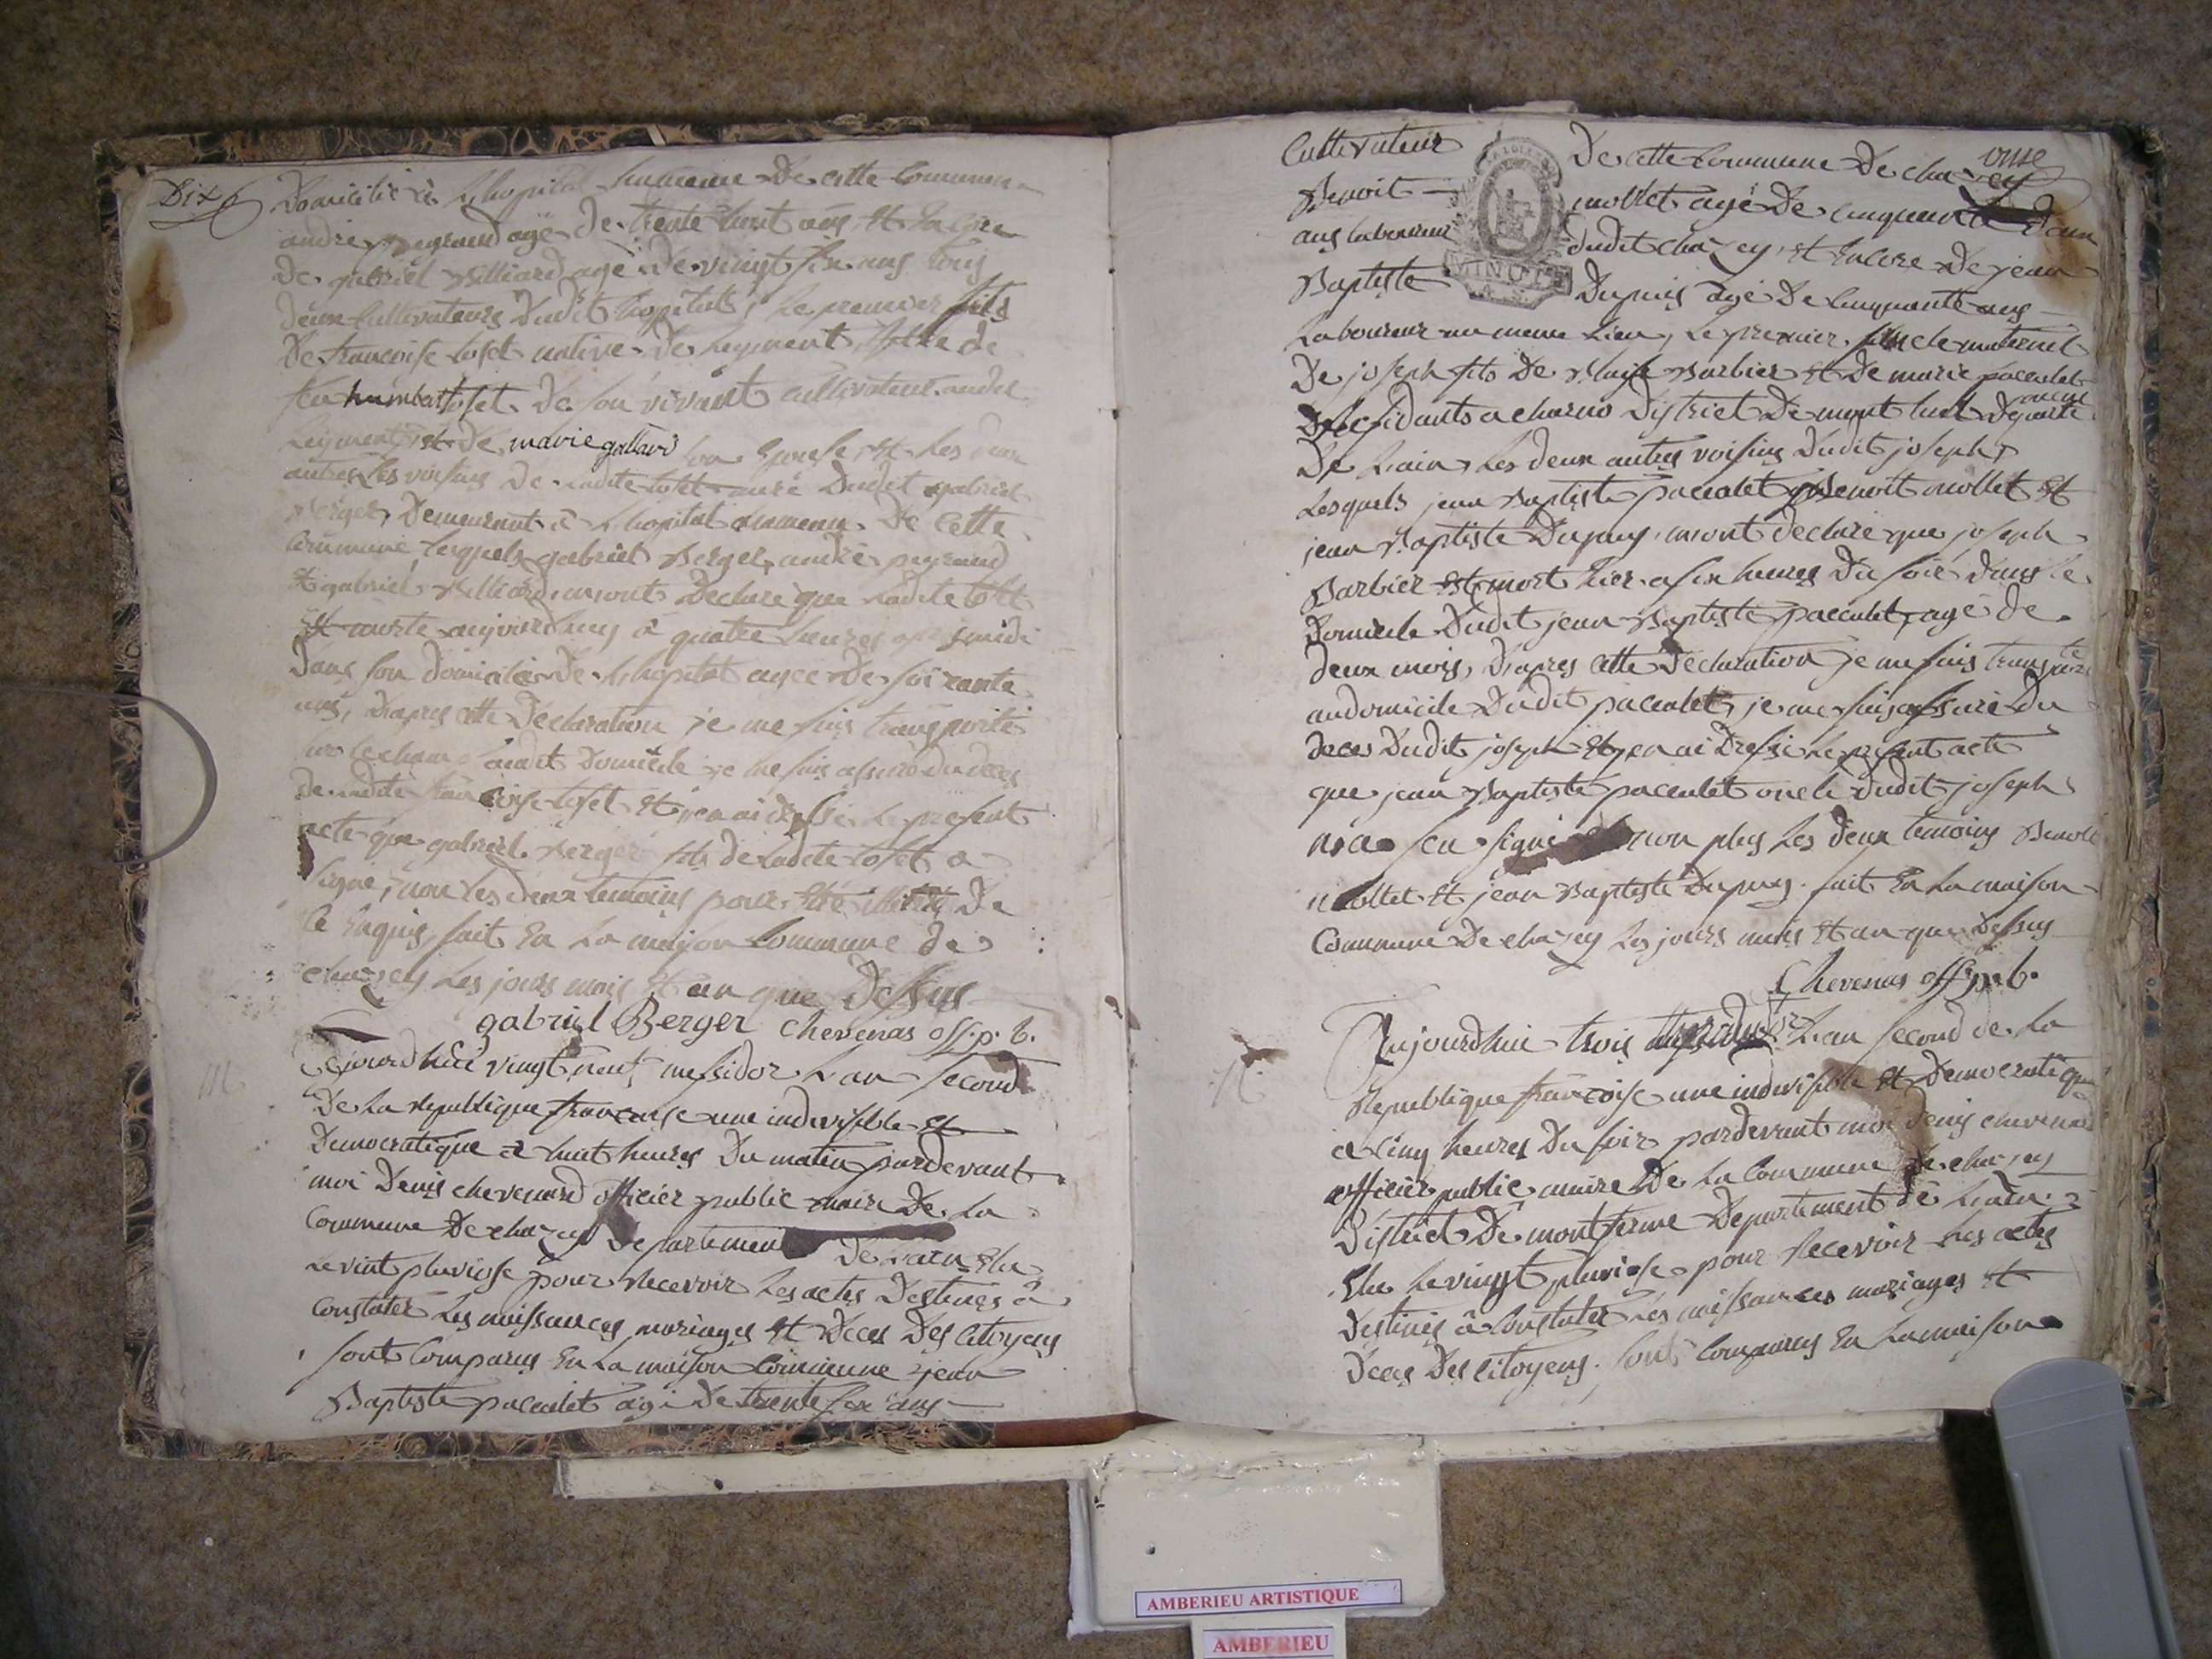 Dix
Domicilié à Lhopital hameau De cette Commune
andre pegrand agé de trente huit ans, Et Encore
De gabriel Billiard agé De vingt six ans tous
deux Cultivateurs Dudit hopital, Le premier fils
De francoise loset native de Legment fille de
feu humbert loset De son vivant cultivateur audit
Legment, et De marie galland son Epouse, Et Les deux
autres Les voisins De Ladite loset mere Dudit gabriel
Berger, Demeurant à Lhopital hameau De Cette
Commune, lesquels gabriel Berger, andré pegrand
Et gabriel Billiard, mont Declaré que Ladite loset
Est morte aujourdhuy à quatre heures apres midi
Dans son domicile De Lhopital agée De soixante
ans, Dapres cette Déclaration je me suis transporté
sur le champ audit Domicile je me suis assuré du deces
de ladite francoise loset Et jen ai dressé Le present
acte que gabriel Berger fils de Ladite loset a
signé, non les deux temoins pour être illitérés De
ce Enquis, fait En La maison Commune de
chazey Les jours mois Et an que Dessus
gabriel Berger Chevenas off. p. b.
Aujourdhui vingt neuf messidor Lan second
De La republique francaise une indivisible Et
Democratique à huit heures Du matin pardevant
moi Denis chevenard officier public maire De La
Commune De chazey Departement De Lain Elu
Le vint pluviose pour Recevoir Les actes Destinés à
Constater Les naissances mariages Et Deces Des Citoyens
sont Comparus En La maison Commune jean
Baptiste paccalet agé De trente six ans
onze
Cultivateur De cette Commune De chazey
Benoit mollet agé De cinquante D'eux
ans laboureur dudit chazey, Et Encore De jean
Baptiste Dupuis agé De Cinquante ans
LA LOI
MINUTE
Laboureur au meme Lieu, Le premier oncle maternel
De joseph fils De Blaise Barbier Et De marie paccalet
Residants a charno District De mont luel Departe
ment
De Lain, Les deux autres voisins Dudit joseph,
Lesquels jean Baptiste paccalet, Benoit mollet Et
jean Baptiste Dupuy, mont declaré que joseph
Barbier Est mort hier a six heures Du soir dans le
Domicile Dudit jean Baptiste paccalet, agé de
deux mois, D'apres cette Déclaration je me suis transporté
au domicile Dudit paccalet, je me suis assuré Du
deces Dudit joseph Et jen ai Dressé Le present acte
que jean Baptiste paccalet oncle Dudit joseph
n'a seu signé non plus Les deux temoins Benoit
mollet Et jean Baptiste Dupuy. fait En La maison
Commune De chazey Les jours mois Et an que Dessus
Chevenas off. p. b.
Aujourdhui trois thermidor Lan second de La
Republique francoise une indivisible Et Democratique
a Cinq heures Du soir pardevant moi Denis chevenard
officier public maire De La Commune De chazey
District De montferme Departement de Lain
Elu Le vingt pluviose pour Recevoir Les actes
Destinés à Constater Les naissances mariages Et
Deces Des Citoyens. sont Comparus En La maison
AMBERIEU ARTISTIQUE
AMBERIEU